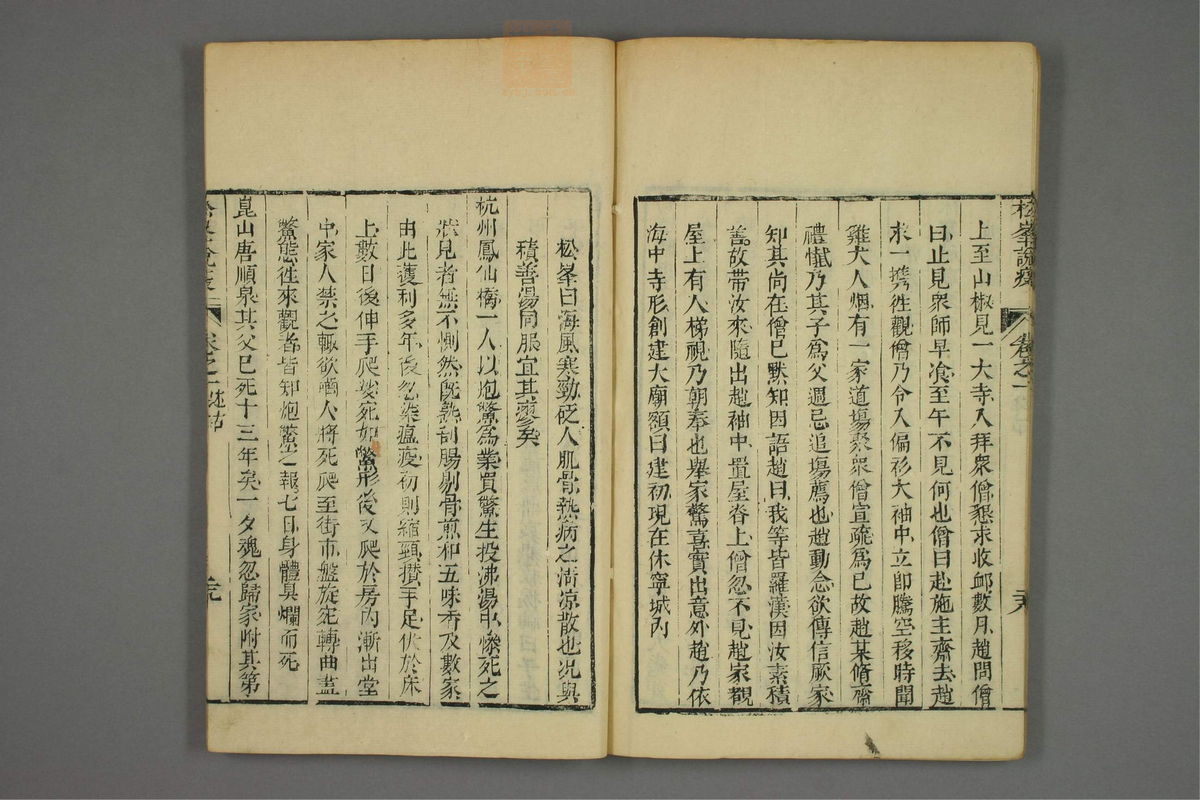 松峯說疫
卷之一
上至山椒見一大寺入拜衆僧懇求收卹數月趙問僧
曰止見衆師早飡至午不見何也僧曰赴施主齋去趙
求一攜徃觀僧乃令入偏衫大袖中立即騰空移時聞
雞犬人烟有一家道塲聚衆僧宣疏爲已故趙某脩齋
禮懴乃其子爲父週忌追塲薦也趙動念欲傳信厥家
知其尚在僧已默知因語趙曰我等皆羅漢因汝素積
善故帶汝來隨出趙袖中置屋脊上僧忽不見趙家覩
屋上有人梯視乃朝奉也舉家驚喜實出意外趙乃依
海中寺形創建大廟額曰建初現在休寧城內
松峯曰海風寒勁砭人肌骨熱病之清凉散也况與
積善湯同服宜其瘳矣
杭州鳳仙橋一人以炮鱉爲業買鱉生投沸湯中慘死之
狀見者無不惻然旣熟刮腸剔骨煎和五味香及數家
由此獲利多年後忽染瘟疫初則縮頸攢手足伏於床
上數日後伸手爬娑宛如鱉形後又爬於房內漸出堂
中家人禁之輙欲嚙人將死爬至街市盤旋宛轉曲盡
鱉態徃來觀者皆知炮鱉之報七日身體臭爛而死
崑山唐順泉其父巳死十三年矣一夕魂忽歸家附其第
卷之一述古